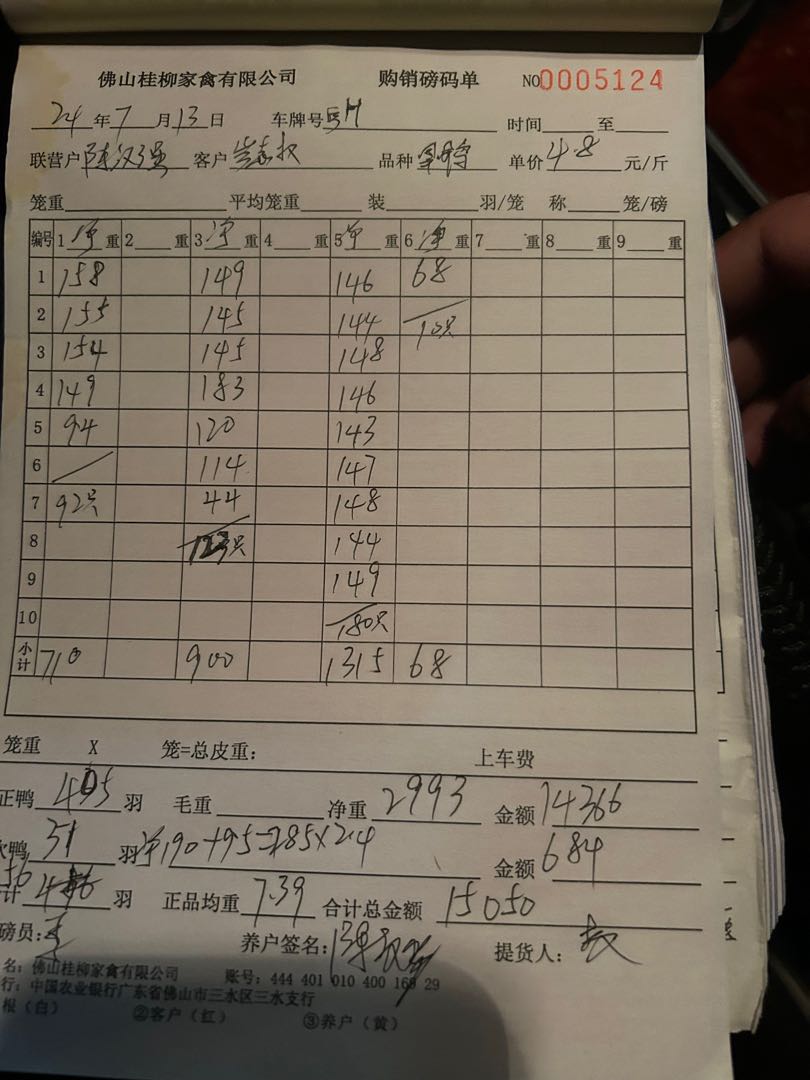 佛山桂柳家禽有限公司 购销磅码单 NO0005124
24年7月13日 车牌号 时间 至
联营户陈汉强 客户 品种 单价4.8元/斤
笼重 平均笼重 装 羽/笼 称 笼/磅
编号 1净重 2 重 3净重 4 重 5净重 6净重 7 重 8 重 9 重
1 158 149 146 68
2 155 145 144 10只
3 154 145 148
4 149 183 146
5 94 120 143
6 114 147
7 92只 44 148
8 123只 144
9 149
10 180只
小计 710 900 1315 68
笼重 X 笼=总皮重: 上车费
正鸭 405 羽 毛重 净重 2993 金额 14366
鸭 51 羽 净190+95=285×2.4 金额 684
计 456 羽 正品均重 7.39 合计总金额 15050
磅员: 养户签名: 提货人:
名:佛山桂柳家禽有限公司 账号:444 401 010 400 169 29
行:中国农业银行广东省佛山市三水区三水支行
根(白) ②客户(红) ③养户(黄)